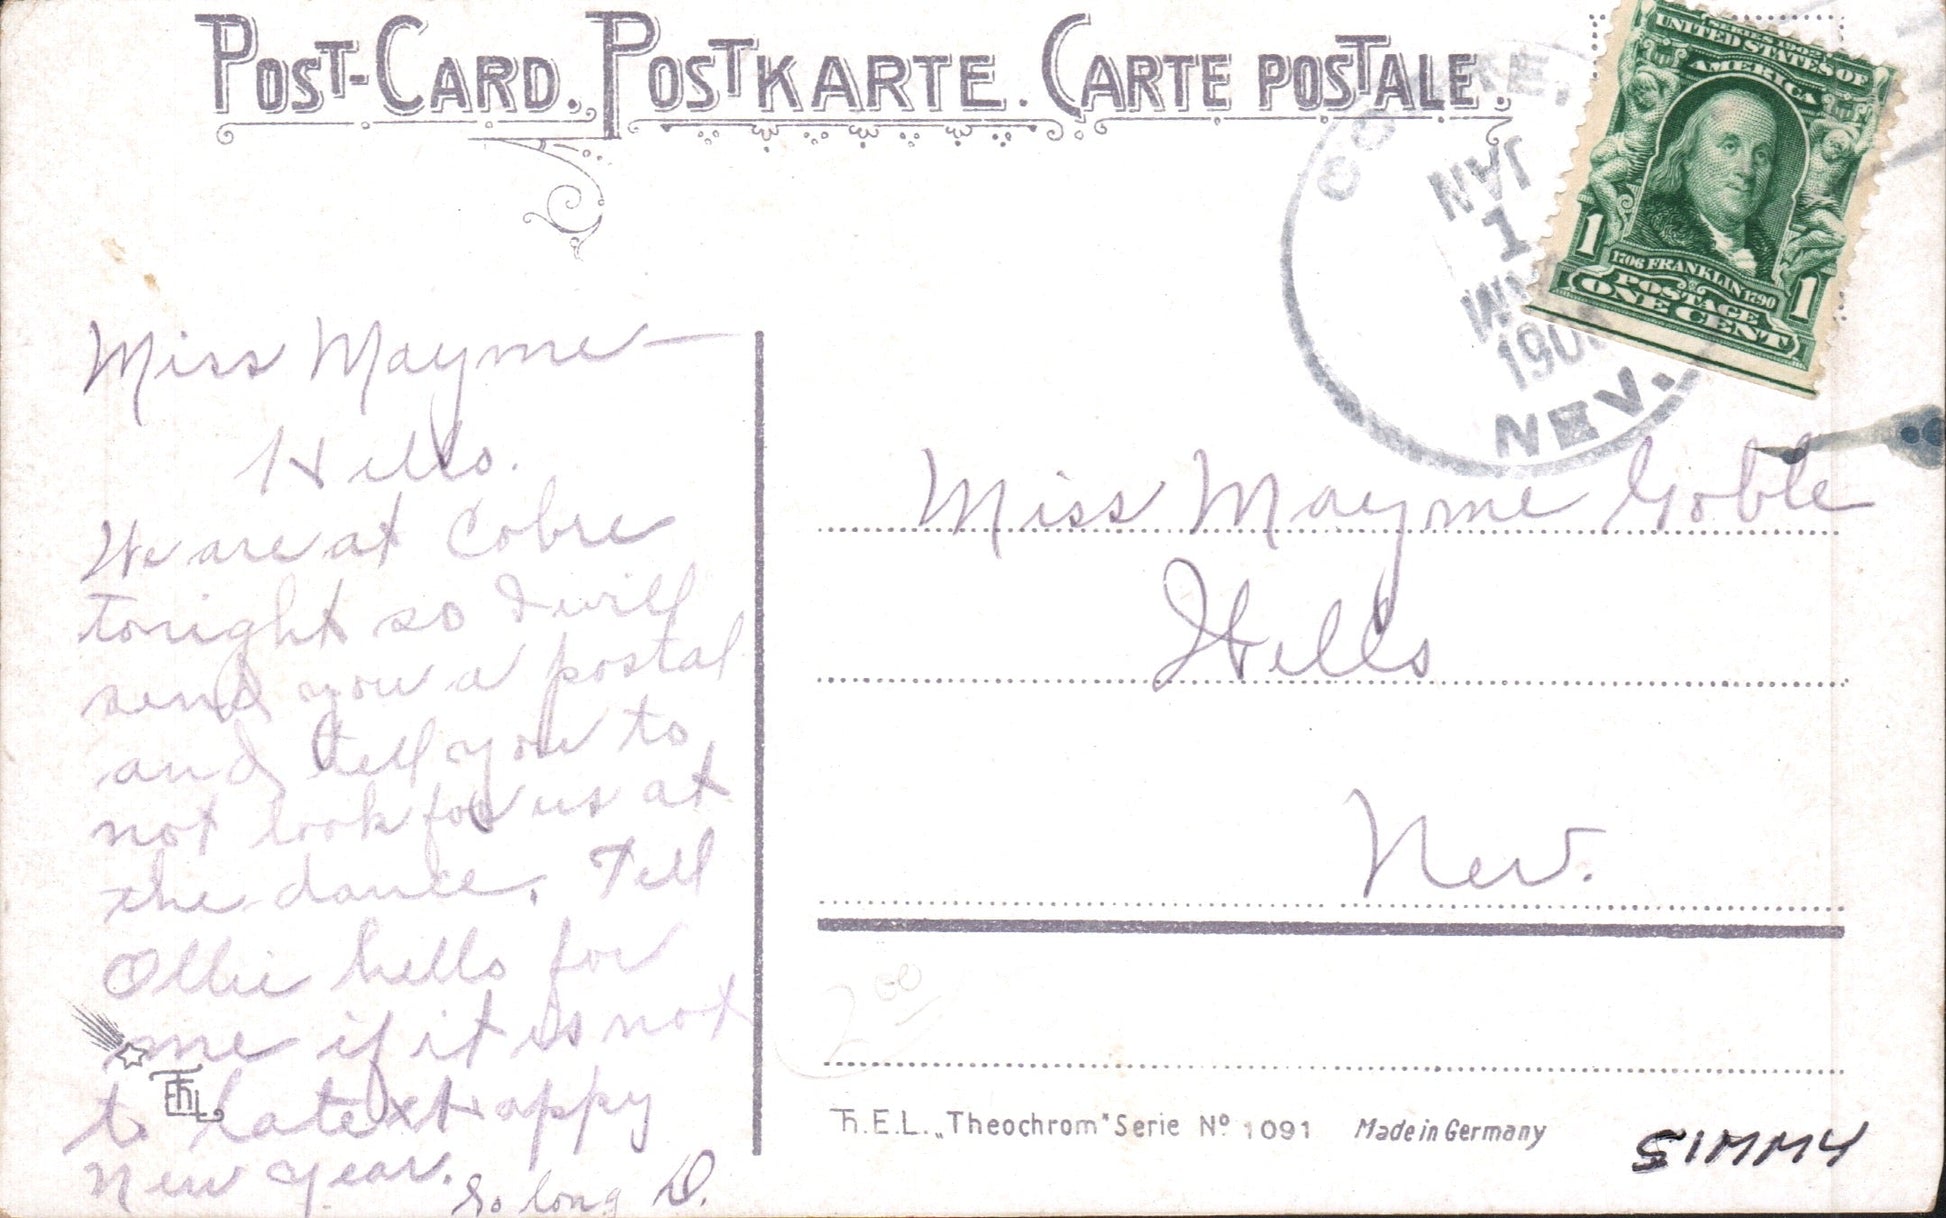 POST-CARD. POSTKARTE. CARTE POSTALE.
SERIES 1902
UNITED STATES OF
AMERICA
1706 FRANKLIN 1790
1 1
POSTAGE
ONE CENT
JAN
1
190
NEV.
Miss Mayme—
Wells.
We are at Cobre
tonight so I will
send you a postal
and tell you to
not look for us at
the dance. Tell
Ollie hello for
me if it is not
to late & Happy
New Year.
So long D.
Miss Mayme Goble
Wells
Nev.
2 00
Th.E.L. „Theochrom" Serie Nº 1091 Made in Germany
EThL
SIMMY